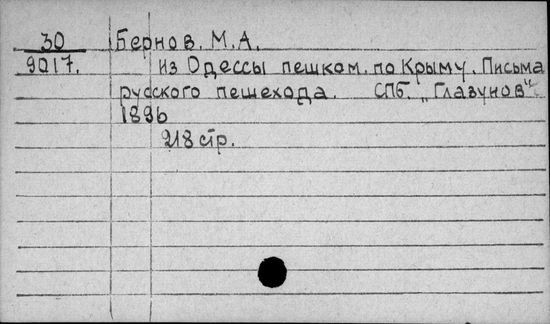 30 Бернов. М.А.
9017. из Одессы пешком. по Крыму. Письма
русского пешехода. СПб. „Глазунов“
1896
218 стр.